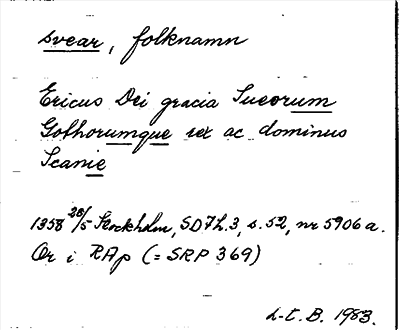 svear, folknamn
Ericus Dei gracia Sueorum
Gothorumque rex ac dominus
Scanie
1358 28/5 Stockholm, SD 7 h.3, s. 52, nr 5906 a.
Or i RAp (= SRP 369)
L-E. B. 1983.